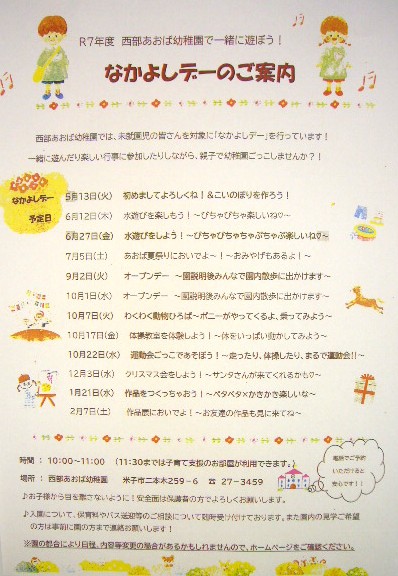 R7年度 西部あおば幼稚園で一緒に遊ぼう！
なかよしデーのご案内
西部あおば幼稚園では、未就園児の皆さんを対象に「なかよしデー」を行っています！
一緒に遊んだり楽しい行事に参加したりしながら、親子で幼稚園ごっこしませんか？！
なかよしデー
予定日
5月13日(火) 初めましてよろしくね！＆こいのぼりを作ろう！
6月12日(木) 水遊びを楽しもう！～ぴちゃぴちゃ楽しいね♡～
6月27日(金) 水遊びをしよう！～ぴちゃぴちゃちゃぷちゃぷ楽しいね♡～
7月5日(土) あおば夏祭りにおいでよ～！～おみやげもあるよ！～
9月2日(火) オープンデー ～園説明後みんなで園内散歩に出かけます～
10月1日(水) オープンデー ～園説明後みんなで園内散歩に出かけます～
10月7日(火) わくわく動物ひろば～ポニーがやってくるよ、乗ってみよう～
10月17日(金) 体操教室を体験しよう！～体をいっぱい動かしてみよう～
10月22日(水) 運動会ごっこであそぼう！～走ったり、体操したり、まるで運動会!!～
12月3日(水) クリスマス会をしよう！～サンタさんが来てくれるかも♡～
1月21日(水) 作品をつくっちゃおう！～ペタペタ×かきかき楽しいな～
2月7日(土) 作品展においでよ！～お友達の作品も見に来てね～
時間 ： 10:00～11:00 （11:30までは子育て支援のお部屋が利用できます。）
場所 ： 西部あおば幼稚園 米子市二本木259－6 ☎ 27－3459
電話でご予約
いただけると
安心です！！
♪お子様から目を離さないように！安全面は保護者の方でよろしくお願いします。
♪入園について、保育料やバス送迎等のご相談について随時受け付けております。また園内の見学ご希望
の方は事前に園の方まで連絡お願いします！
※園の都合により日程、内容等変更の場合があるかもしれませんので、ホームページをご確認ください。